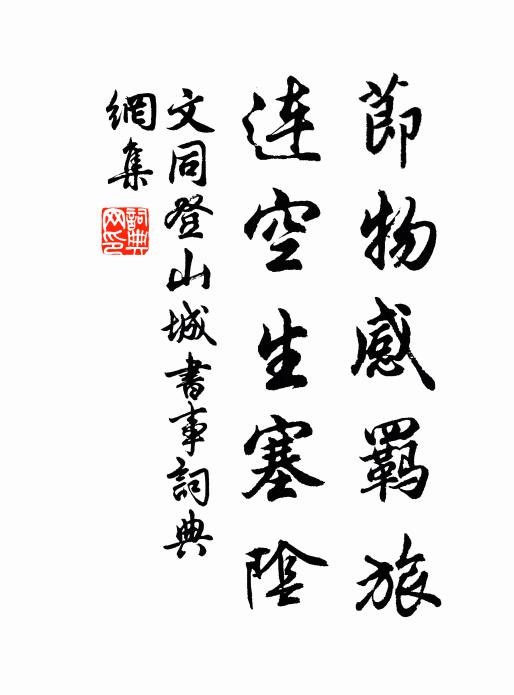 節物感羈旅
連空生塞陰
文同登山城書事詞典
網集
詞典
网印